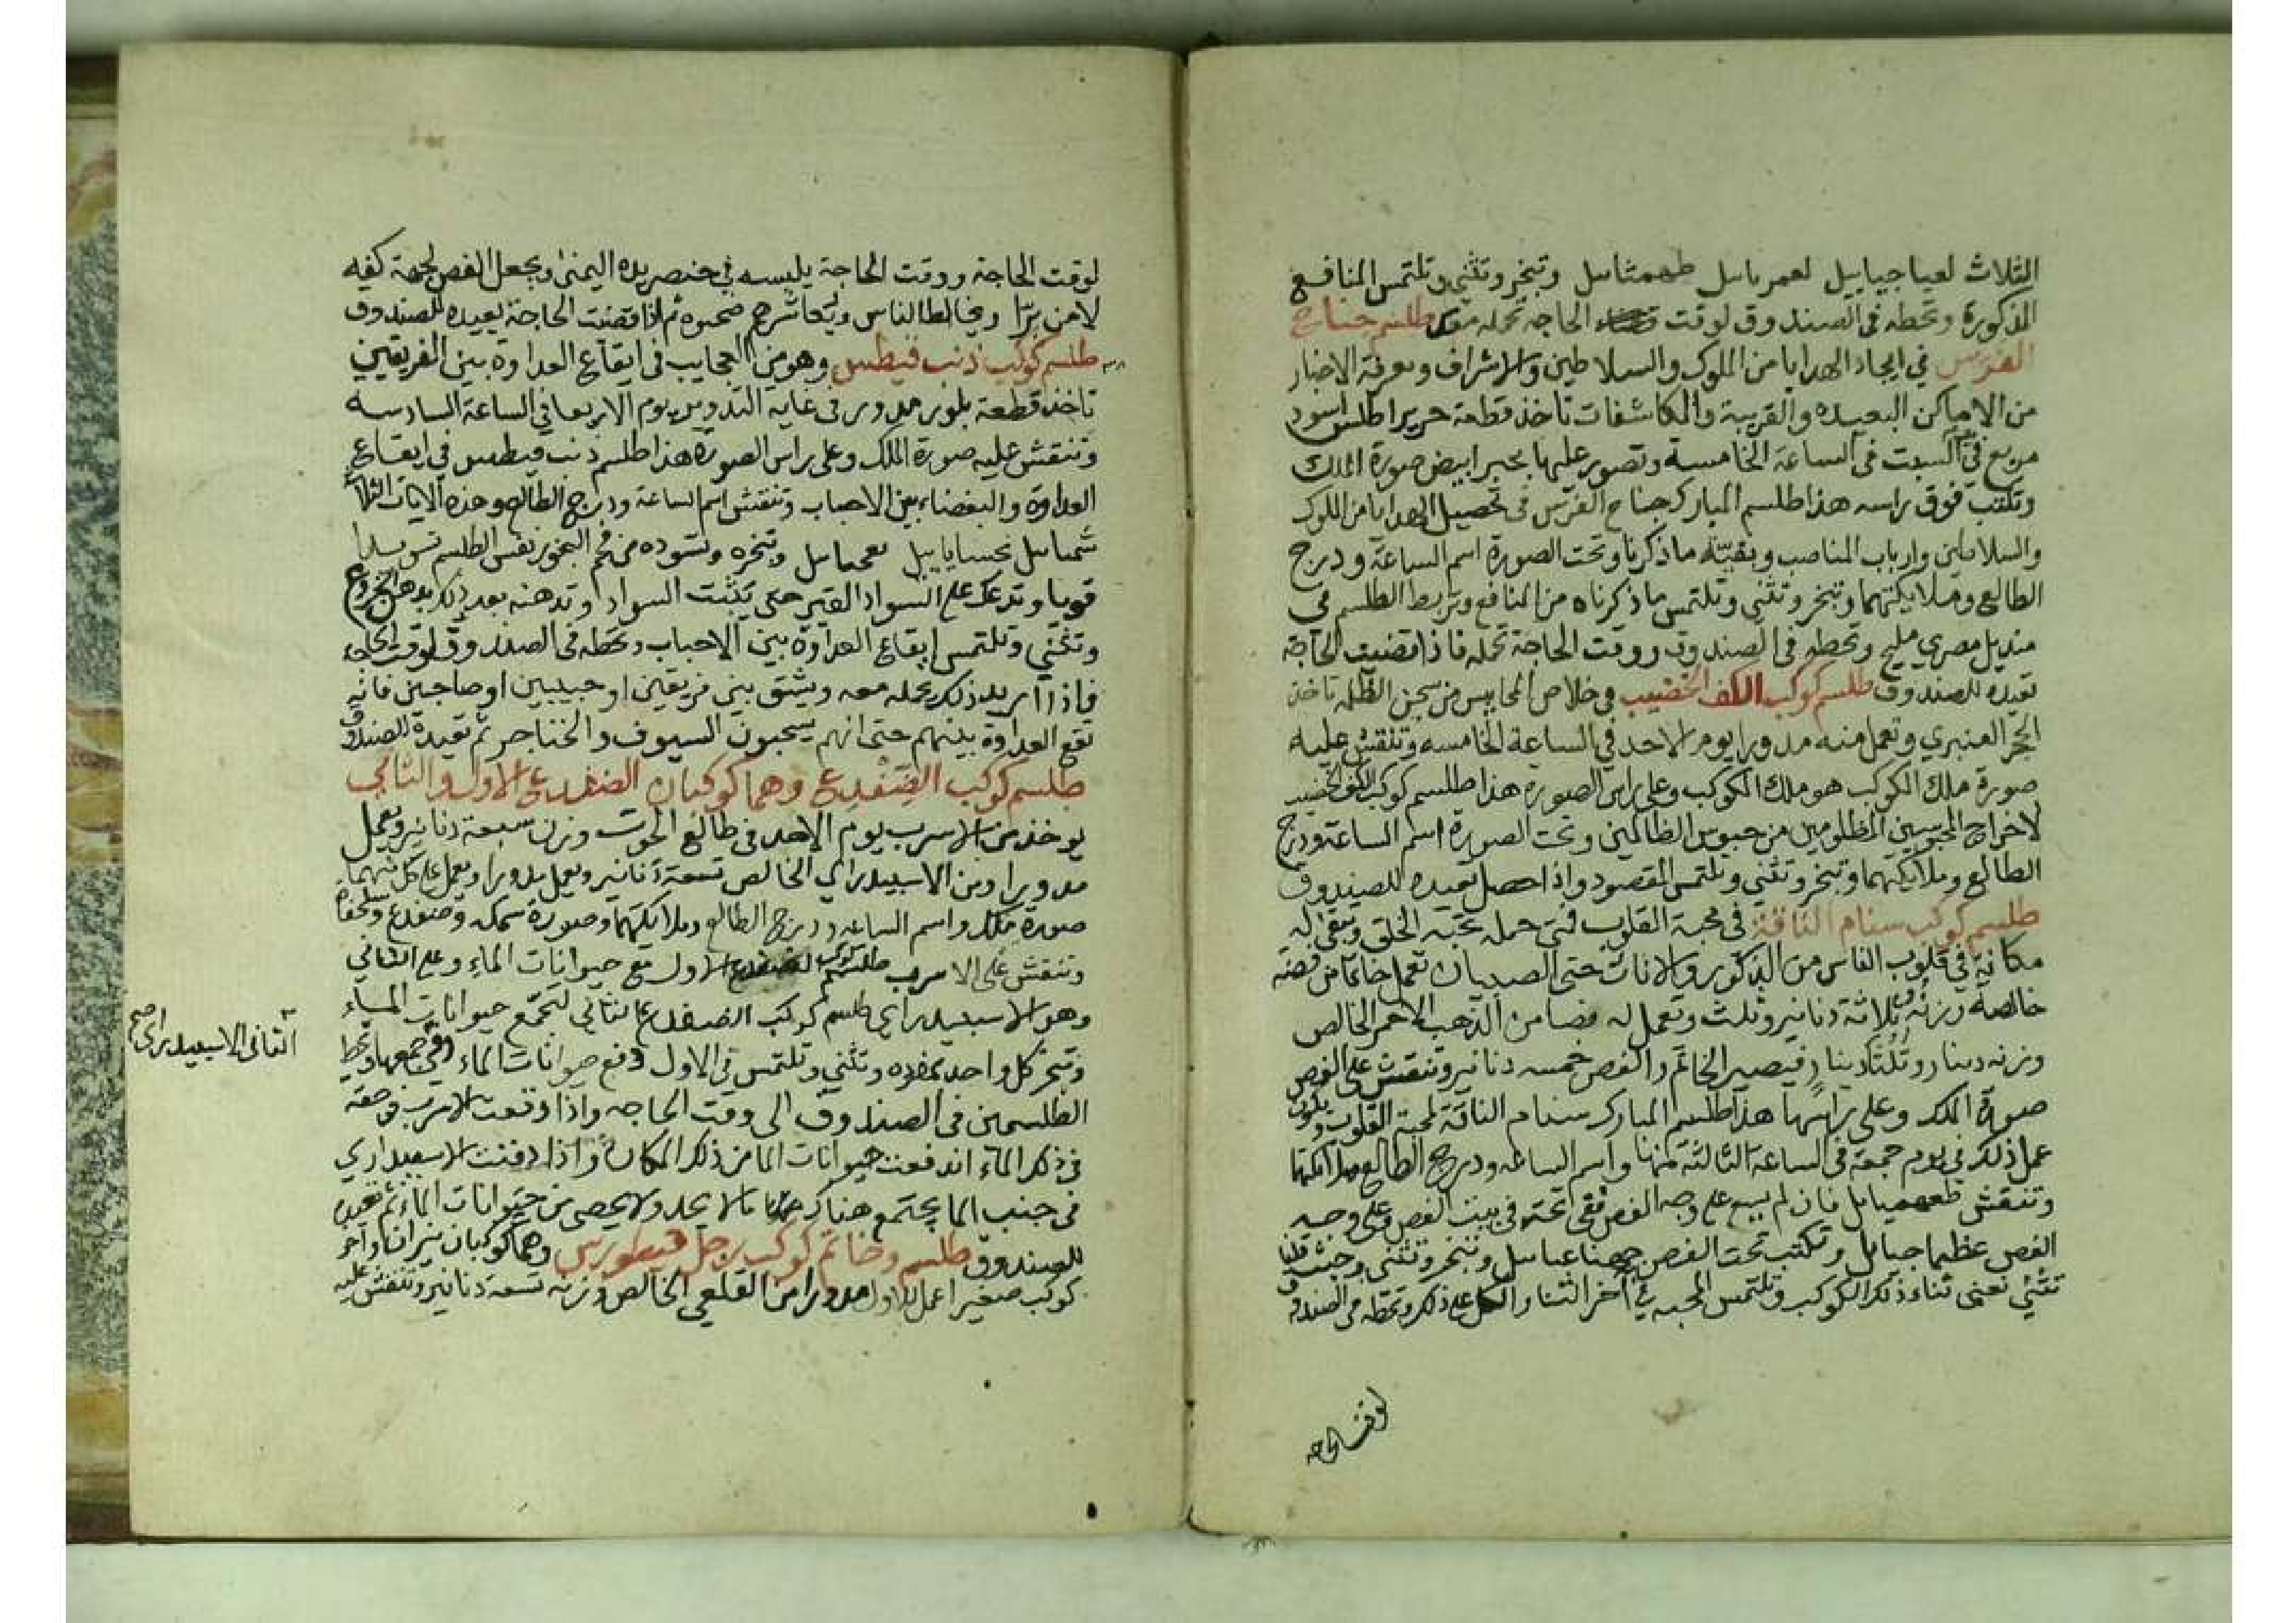 الثلاث لعياجيابيل لعمرياىىل طهمثاىىل وتبخر وتثني وتلتمس المنافع
المذكورة وتحطه في الصندوق لوقت الحاجه تحمله معك طلسم جناح
الفرس في ايجاد الهدايا من الملوك والسلاطين والاشراف ومعرفة الاخبار
من الاماكن البعيده والقريبة والمكاشفات تاخذ قطعة حرير اطلس اسود
مربع في السبت في الساعة الخامسة وتصور عليها بحبر ابيض صورة الملك
وتكتب فوق راسه هذا طلسم المبارك جناح الفرس في تحصيل الهدايا من الملوك
والسلاطين وارباب المناصب وبقيّة ما ذكرنا وتحت الصورة اسم الساعة ودرج
الطالع وملايكتهما وتبخر وتثني وتلتمس ما ذكرناه من المنافع وتربط الطلسم في
منديل مصري مليح وتحطه في الصندوق ووقت الحاجة تحمله فاذا قضيت الحاجة
تعيده للصندوق طلسم كوكب الكف الخضيب في خلاص المحابيس من سجن الظلمه تاخذ
الحجر العنبري وتعمل منه مدورا يوم الاحد في الساعة الخامسه وتنقش عليه
صورة ملك الكوكب هو ملك الكوكب وعلى راس الصوره هذا طلسم كوكب الكف الخضيب
لاخراج المحبوسين المظلومين من حبوس الظالمين وتحت الصورة اسم الساعة ودرج
الطالع وملايكتهما وتبخر وتثني وتلتمس المقصود واذا حصل تعيده للصندوق
طلسم كوكب سنام الناقة في محبة القلوب فمتى حمله تحبه الخلق ويبقى له
مكانة في قلوب الناس من الذكور والاناث حتى الصبيان تعمل خاتما من فضه
خالصه وزنه ثلاثة دنانير وثلث وتعمل له فصا من الذهب الاحمر الخالص
وزنه دينار وثلثا دينار فيصير الخاتم والفص خمسه دنانير وتنقش على الفص
صورة الملك وعلى راسها هذا طلسم المبارك سنام الناقة لمحبة القلوب ويكون
عمل ذلك في يوم جمعة في الساعة الثالثة منها واسم الساعه ودرج الطالع
وتنقش فان لم يسع على وجه الفص فتحته في بيت الفص وعلى وجه
الفص عظيما جيابل وتكتب تحت الفص وتبخر وتثني وحيث قلنا
تثني نعني ثناء ذلك الكوكب وتلتمس المحبه في آخر الثنا والكل على ذلك وتحطه في الصندوق
لوقت الحاجه
لوقت الحاجة ووقت الحاجة يلبسه في خنصر يده اليمنى ويجعل الفص لجهة كفيه
لا من برّا ويخالط الناس ثم اذا قضيت الحاجة يعيده للصندوق
طلسم كوكب ذنب قيطس وهو من العجايب في ايقاع العداوة بين الفريقين
تاخذ قطعة بلور مدور في غاية التدوير يوم الاربعا في الساعة السادسه
وتنقش عليه صورة الملك وعلى راس الصورة هذا طلسم ذنب قيطس في ايقاع
العداوة والبغضاء بين الاحباب وتنقش اسم الساعة ودرج الطالع وهذه الايات الثلاث
وتبخره وتسوده من فحم البخور نفس الطلسم تسويدا
قويا وتدعك على السواد القير حتى يثبت السواد وتدهنه بعد ذلك بدهن الخروع
وتثني وتلتمس ايقاع العداوة بين الاحباب وتحطه في الصندوق لوقت الحاجه
فاذا اريد ذلك يحمله معه ويشق بين فريقين او حبيبين او صاحبين فانه
تقع العداوة بينهم حتى انهم يسحبون السيوف والخناجر ثم تعيده للصندوق
طلسم كوكب الضفدع وهما كوكبان الضفدع الاول والثاني
يوخذ من الاسرب يوم الاحد في طالع الحوت وزن سبعة دنانير ويعمل
مدورا ومن الاسبيدراي الخالص تسعة دنانير ويعمل مدورا ويعمل على كل منهما
صورة ملك واسم الساعه ودرج الطالع وملايكتهما وصورة سمكه وضفدع وسلحفاة
وتنقش على الاسرب طلسم كوكب الضفدع الاول مع حيوانات الماء وعلى الثاني
وهو الاسبيدراي طلسم كوكب الضفدع الثاني لتجمع حيوانات الماء
وتبخر كل واحد بمفرده وتثني وتلتمس في الاول دفع حيوانات الماء وتحط
الطلسمين في الصندوق الى وقت الحاجه واذا وضعت الاسرب
في ذلك الماء اندفعت حيوانات الما من ذلك المكان واذا دفنت الاسبيداري
في جنب الما يجتمع هناك ما لا يحد ولا يحصى من حيوانات الماء ثم تعيده
للصندوق طلسم وخاتم كوكب رجل قيطورس وهما كوكبان نيران واخر
كوكب صغير اعمل للاول مدورا من القلعي الخالص وزنه تسعة دنانير وتنقش عليه
الثاني الاسبيدراي صح